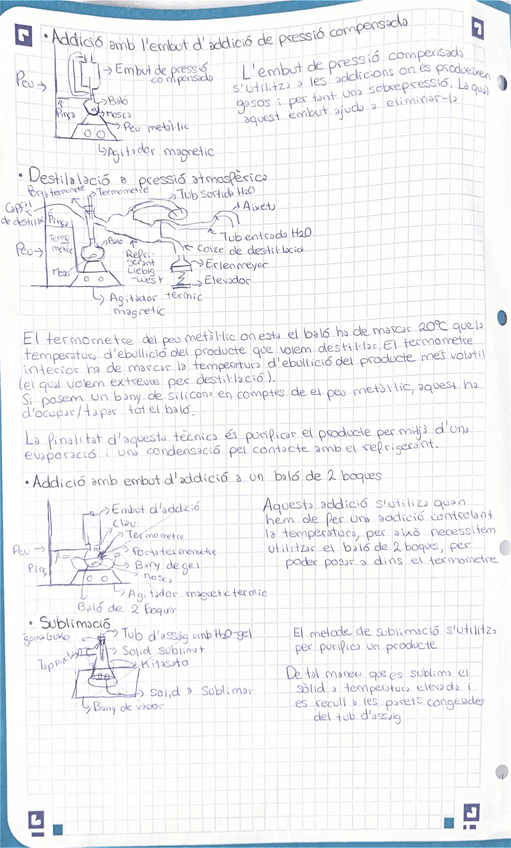 • Addició amb l'embut d'addició de pressió compensada
Peu
Embut de pressió
compensada
Baló
Pinça
Mosca
Peu metàl·lic
Agitador magnetic
L'embut de pressió compensada
s'utilitza a les addicions on es produeixen
gasos i per tant una sobrepressió. La qual
aquest embut ajuda a eliminar-la
• Destil·lació a pressió atmosfèrica
Termometre
Tub sortida H2O
Aixeta
Capçal
de destil·lació
Pinça
Tub entrada H2O
Peu
Termo
metre
Baló
Refri-
gerant
Liebig
-west
Colze de destil·lació
Erlenmeyer
Elevador
Mosca
Agitador tèrmic
magnetic
El termometre del peu metàl·lic on esta el baló ha de marcar 20°C que la
temperatura d'ebullició del producte que volem destil·lar. El termometre
interior ha de marcar la temperatura d'ebullició del producte més volatil
(el qual volem extreure per destil·lació).
Si posem un bany de silicona en comptes de el peu metàl·lic, aquest ha
d'ocupar/tapar tot el baló.
La finalitat d'aquesta tècnica és purificar el producte per mitjà d'una
evaporació i una condensació pel contacte amb el refrigerant.
• Addició amb embut d'addició a un baló de 2 boques
Embut d'addició
Clau
Termometre
Peu
Portatermometre
Pinça
Bany de gel
Mosca
Agitador magnetic termic
Baló de 2 boques
Aquesta addició s'utilitza quan
hem de fer una addició controlant
la temperatura, per això necessitem
utilitzar el baló de 2 boques, per
poder posar a dins el termometre
• Sublimació
goma Guko
Tub d'assaig amb H2O-gel
Solid sublimat
Kitasato
Solid a Sublimar
Bany de vapor
El metode de sublimació s'utilitza
per purifica un producte
De tal manera que es sublima el
sòlid a temperatura elevada i
es recull a les parets congelades
del tub d'assaig